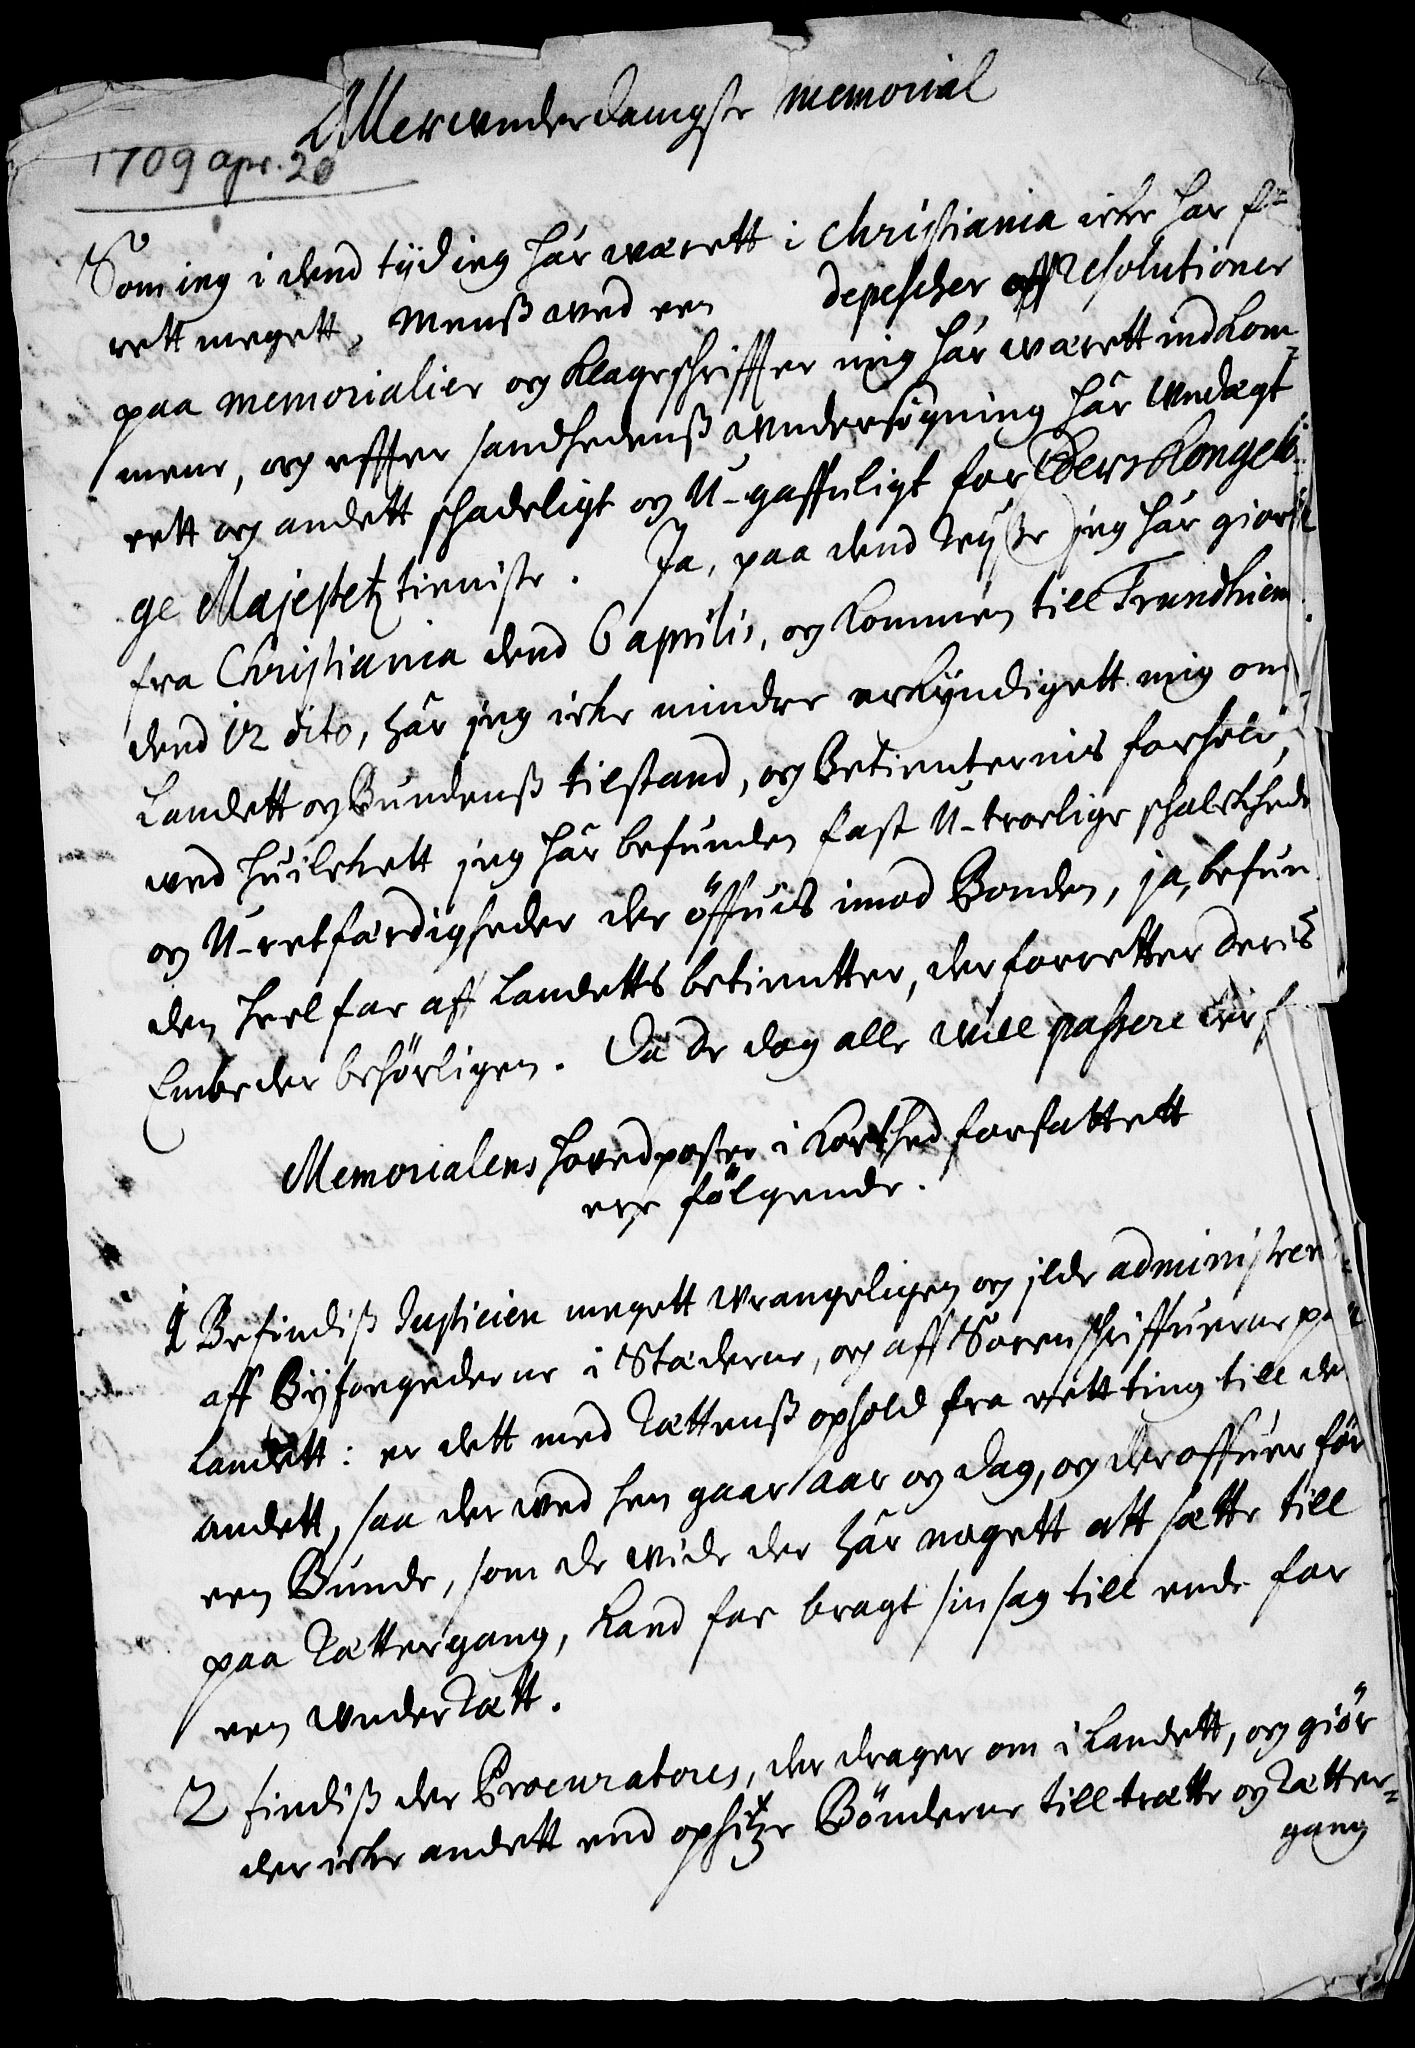 Allerunderdanigste Memorial
1709 apr. 20
Som ieg i dend tyd ieg har wærett i Christiania icke har f=
rett megett, Menß wed een depescher aff Resolutioner
paa memorialier og Klageschriffter mig har wærett indkom=
mene, og effter sandhedenß wndersögning har wndægt
rett og andett schadeligt og U-gaffnligt for Eders Kongeli=
ge Majestetz tieniste. Ja, paa dend Reyse jeg har giort
fra Christiania dend 6 aprilis, og kommen till Trundhiem
dend 12 dito, har jeg icke mindre erkyndigett mig om
Landett og Bundenß tilstand, og Betienternis forhold,
wed huilckett jeg har befunden fast U-troelige schalckhede
og U-retfærdigheder der öffuis imod Bonden, ja, befun
den heel faa aff Landetts betientter, der forretter deris
Embeder behörligen. Da de dog alle will passere
Memorialens hovedposter i Korthed forfattett
ere fölgende.
1 Befindiß Justicien megett wrangeligen og ilde administrer
aff Byfogederne i Stæderne, og aff Sorenschriffuerne paa
Landett: er dett med Rættenß ophold fra rett ting till de
andett, saa der wed hen gaar aar og dag, og der offuer för
een Bunde, som de wide der har nogett att sætte till
paa Rættergang, kand faa bragt sin sag till ende for
een wnderRætt.
2 findiß der Procuratores, der drager om i Landett, og giör
der icke andett end ophitze Bönderne till trætte og Rætter=
gang